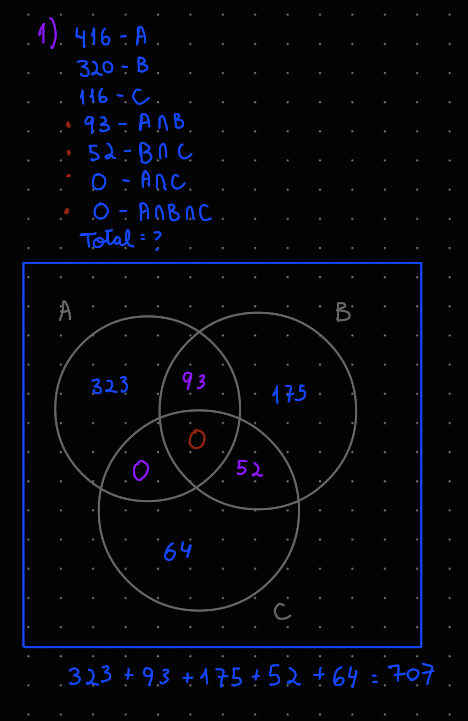 1) 416 - A
320 - B
116 - C
• 93 - A∩B
• 52 - B∩C
• 0 - A∩C
• 0 - A∩B∩C
Total = ?
A B
323 93 175
0
0 52
64
C
323 + 93 + 175 + 52 + 64 = 707